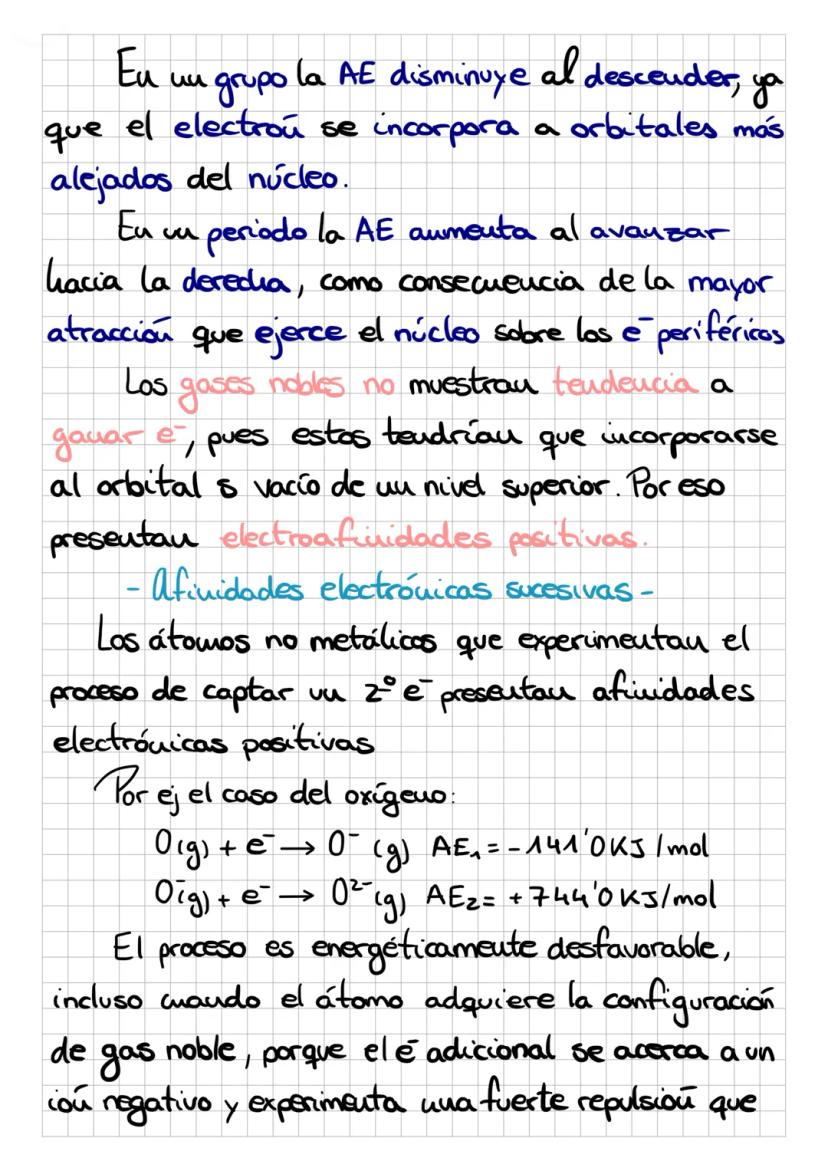 En un grupo la AE disminuye al descender, ya
que el electrón se incorpora a orbitales más
alejados del núcleo.
En un periodo la AE aumenta al avanzar
hacia la derecha, como consecuencia de la mayor
atracción que ejerce el núcleo sobre los e⁻ periféricos
Los gases nobles no muestran tendencia a
ganar e⁻, pues estos tendrían que incorporarse
al orbital s vacío de un nivel superior. Por eso
presentan electroafinidades positivas.
- Afinidades electrónicas sucesivas -
Los átomos no metálicos que experimentan el
proceso de captar un 2º e⁻ presentan afinidades
electrónicas positivas
Por ej el caso del oxígeno:
O(g) + e⁻ → O⁻ (g) AE₁ = -141'0 KJ /mol
O⁻(g) + e⁻ → O²⁻(g) AE₂ = +744'0 KJ/mol
El proceso es energéticamente desfavorable,
incluso cuando el átomo adquiere la configuración
de gas noble, porque el e⁻ adicional se acerca a un
ión negativo y experimenta una fuerte repulsión que